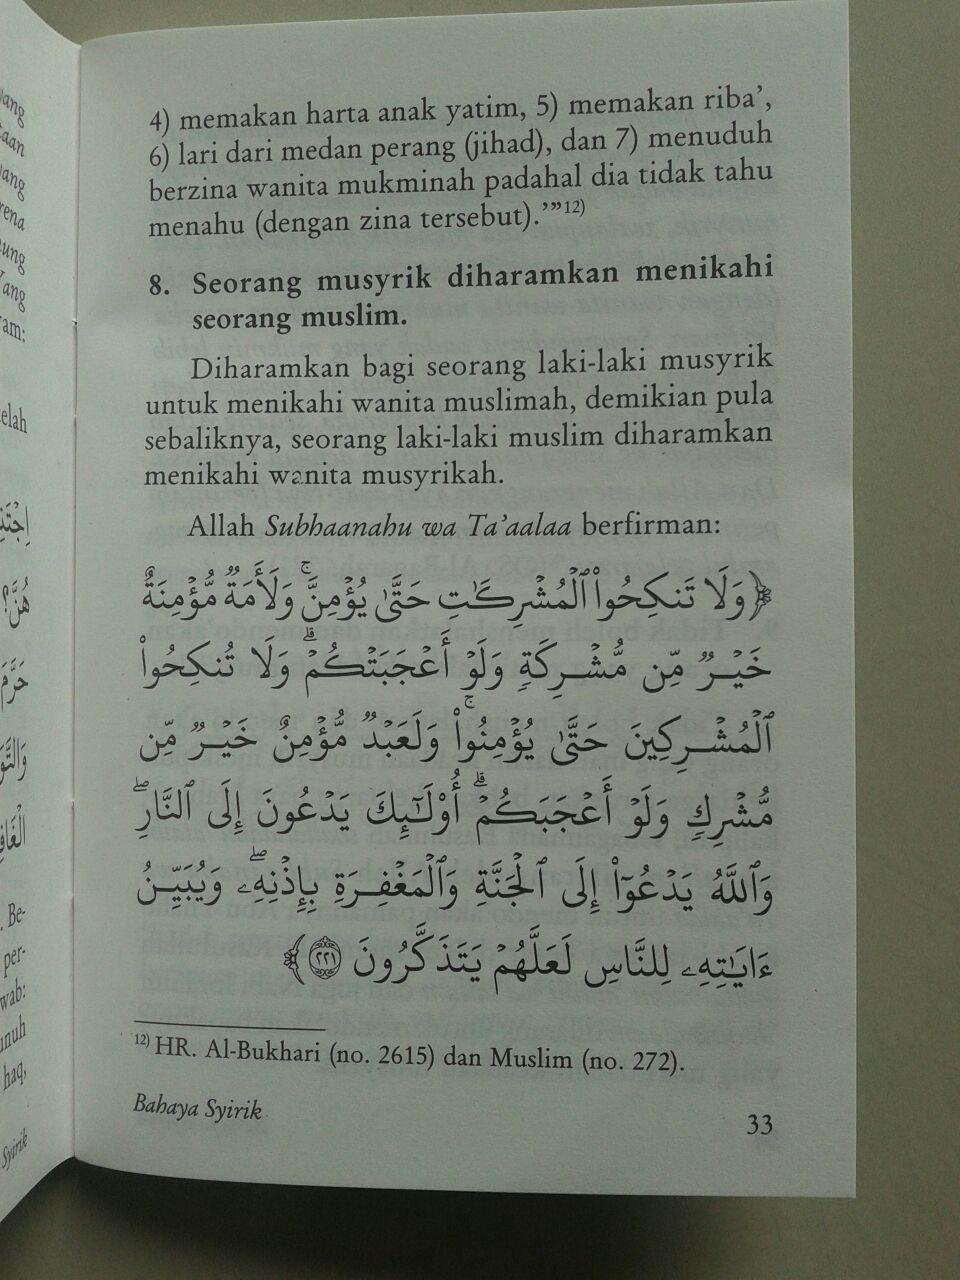 4) memakan harta anak yatim, 5) memakan riba’,
6) lari dari medan perang (jihad), dan 7) menuduh
berzina wanita mukminah padahal dia tidak tahu
menahu (dengan zina tersebut).’”12)
8. Seorang musyrik diharamkan menikahi
seorang muslim.
Diharamkan bagi seorang laki-laki musyrik
untuk menikahi wanita muslimah, demikian pula
sebaliknya, seorang laki-laki muslim diharamkan
menikahi wanita musyrikah.
Allah Subhaanahu wa Ta’aalaa berfirman:
﴿وَلَا تَنكِحُوا۟ ٱلْمُشْرِكَـٰتِ حَتَّىٰ يُؤْمِنَّ ۚ وَلَأَمَةٌ مُّؤْمِنَةٌ
خَيْرٌ مِّن مُّشْرِكَةٍ وَلَوْ أَعْجَبَتْكُمْ ۗ وَلَا تُنكِحُوا۟
ٱلْمُشْرِكِينَ حَتَّىٰ يُؤْمِنُوا۟ ۚ وَلَعَبْدٌ مُّؤْمِنٌ خَيْرٌ مِّن
مُّشْرِكٍ وَلَوْ أَعْجَبَكُمْ ۗ أُو۟لَـٰٓئِكَ يَدْعُونَ إِلَى ٱلنَّارِ ۖ
وَٱللَّهُ يَدْعُوٓا۟ إِلَى ٱلْجَنَّةِ وَٱلْمَغْفِرَةِ بِإِذْنِهِۦ ۖ وَيُبَيِّنُ
ءَايَـٰتِهِۦ لِلنَّاسِ لَعَلَّهُمْ يَتَذَكَّرُونَ ٢٢١﴾
12) HR. Al-Bukhari (no. 2615) dan Muslim (no. 272).
Bahaya Syirik
33